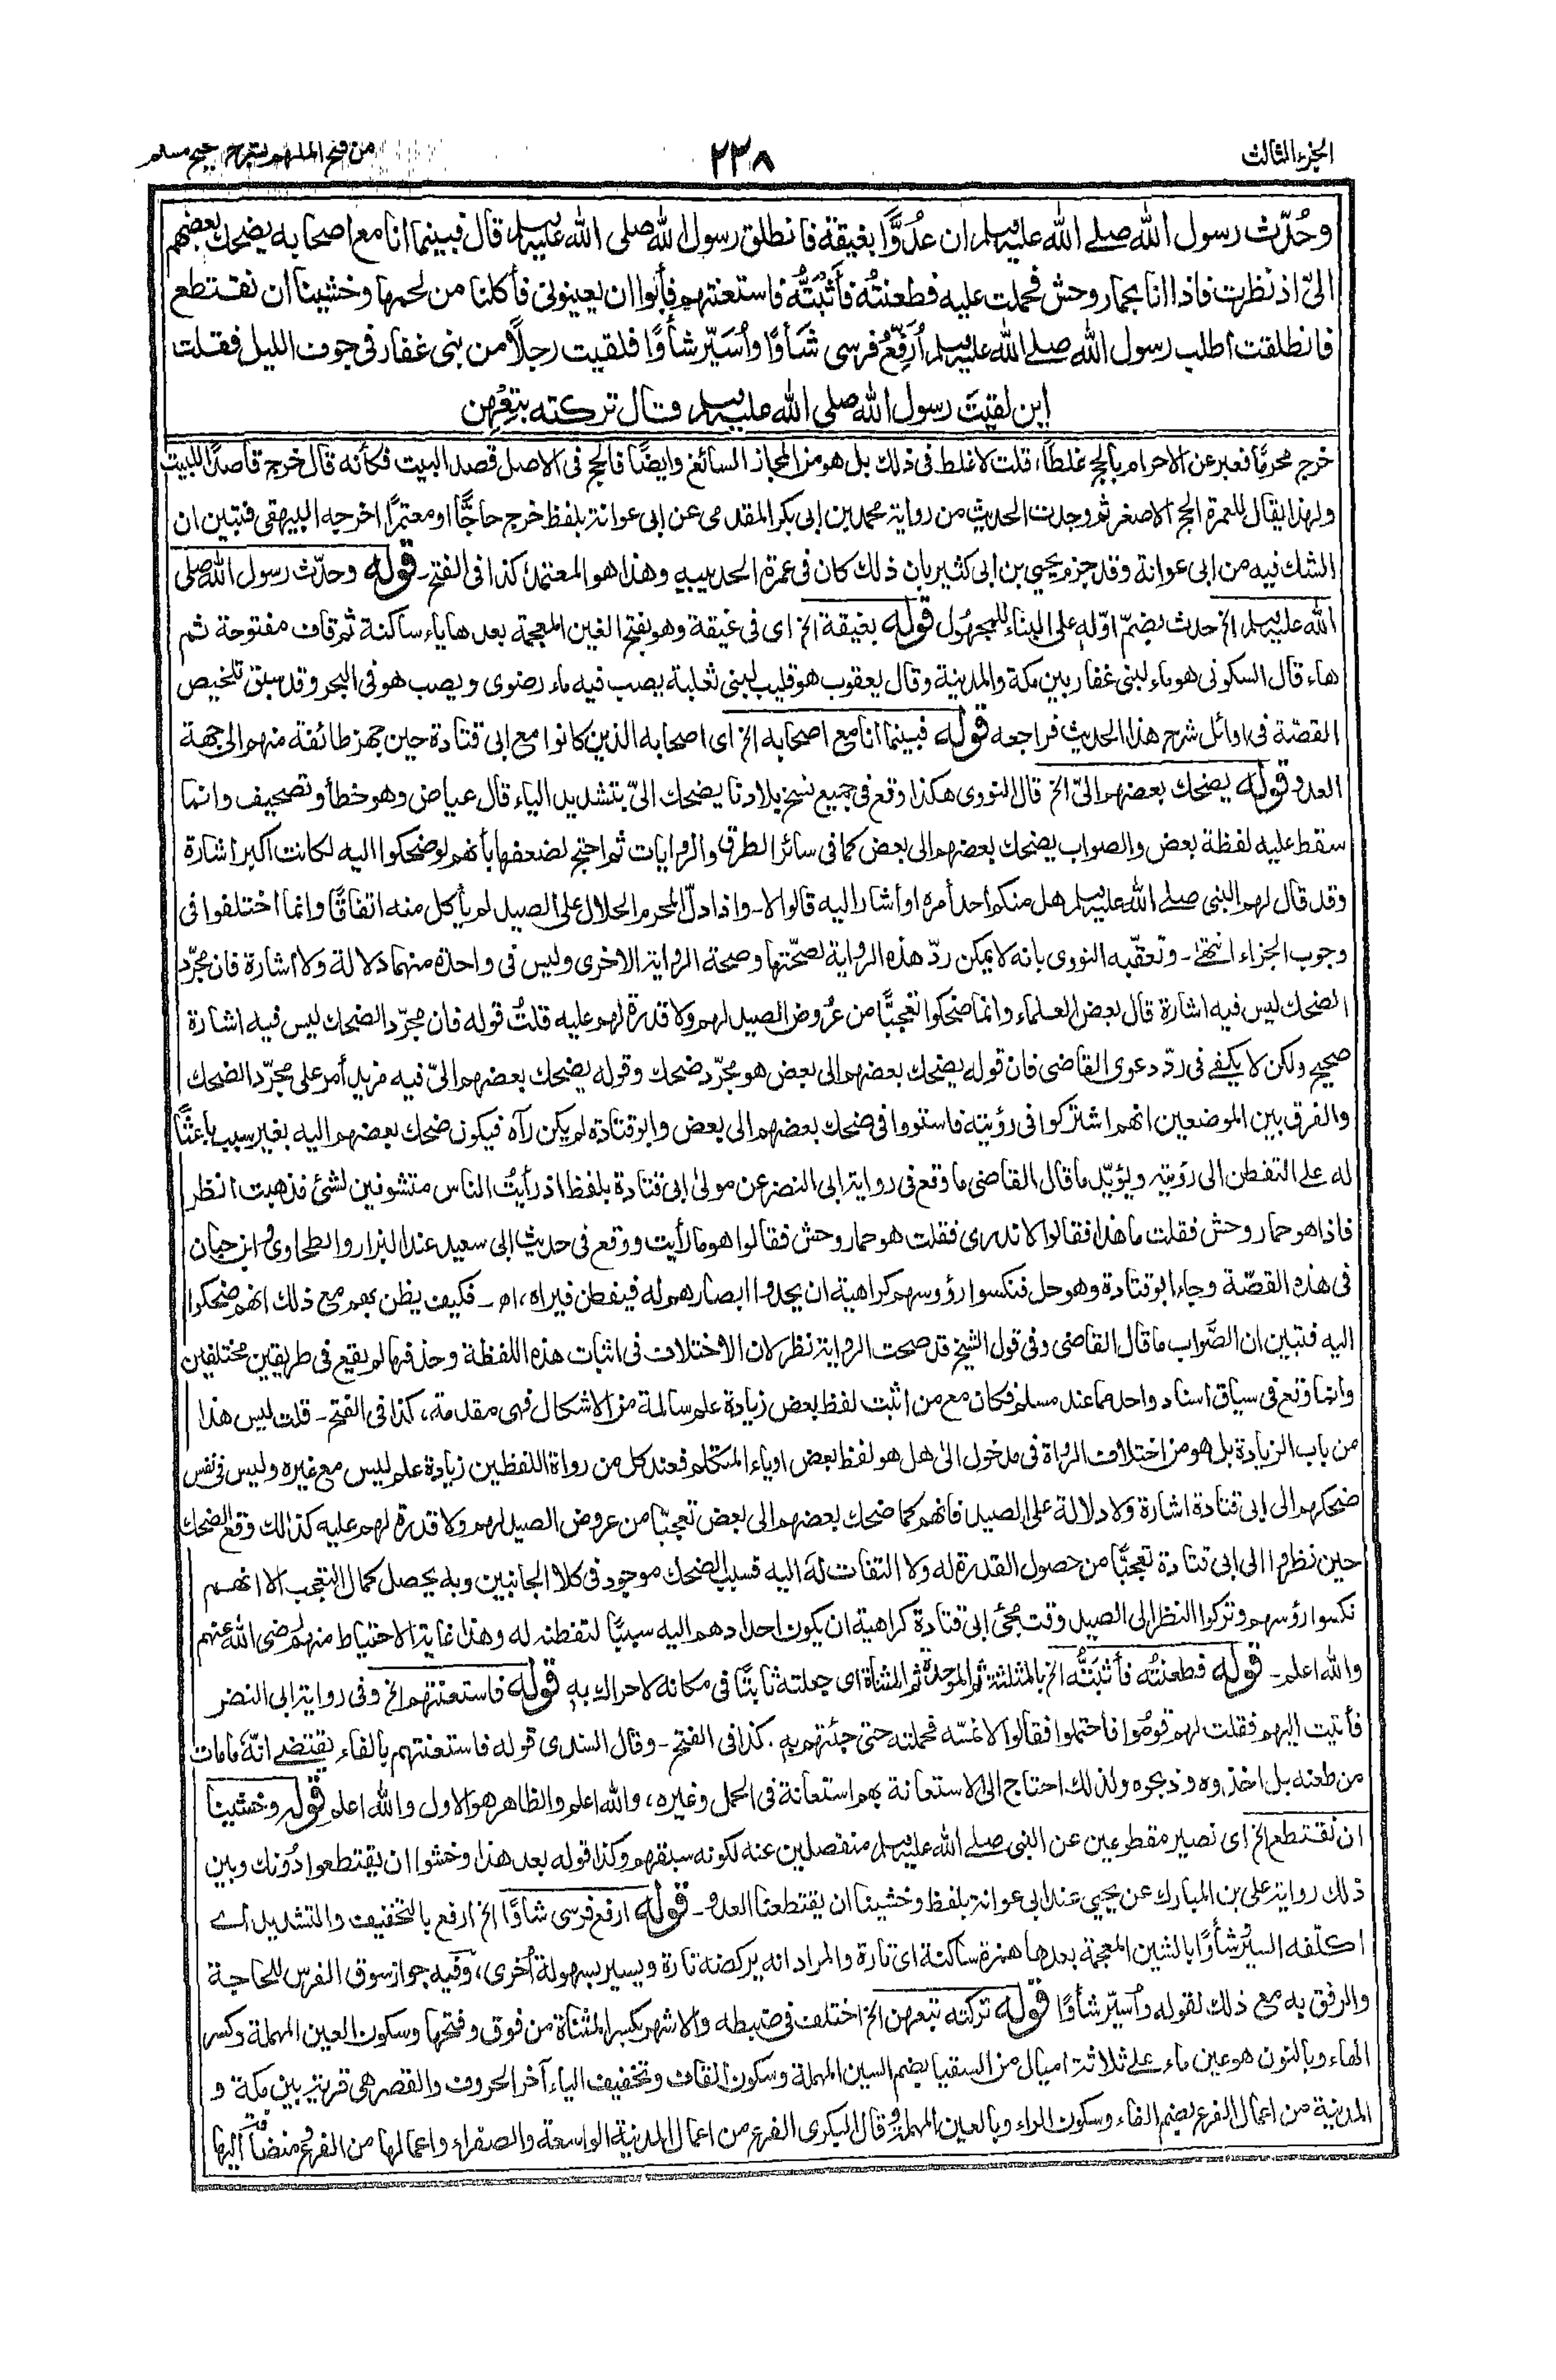 الجزء الثالث
٢٣٨
من فتح الملهم بشرح صحيح مسلم
وحُدِّث رسول الله صلے الله عليه وسلم ان عدُوًّا بغيقة فانطلق رسول الله صلى الله عليه وسلم قال فبينما انا مع اصحابه يضحك بعضهم
الىّ اذ نظرت فاذا انا بحمار وحش فحملت عليه فطعنتُه فأثبَتُّه فاستعنتهم فأبوا ان يعينونى فأكلنا من لحمها وخشينا ان نقتطع
فانطلقت اطلب رسول الله صلے الله عليه وسلم أُرَفِّعُ فرسى شَأوًا وأُسَيّر شأوًا فلقيت رجلاً من بنى غفار فى جوف الليل فقلت
اين لقيتَ رسول الله صلى الله عليه وسلم قال تركته بتِعْهِن
خرج محرمًا فعبر عن الاحرام بالحج غلطًا، قلت لا غلط فى ذلك بل هو من المجاز السائغ وايضًا فالحج فى الاصل قصد البيت فكأنه قال خرج قاصدًا للبيت
ولهذا يقال للعمرة الحج الاصغر ثم وجدت الحديث من رواية محمد بن ابى بكر المقدمى عن ابى عوانة بلفظ خرج حاجًّا او معتمرًا اخرجه البيهقى فتبين ان
الشك فيه من ابى عوانة وقد جزم يحيى بن ابى كثير بان ذلك كان فى عمرة الحديبيه وهذا هو المعتمد كذا فى الفتح۔ قوله وحدّث رسول الله صلى
الله عليه وسلم الخ حدث بضمّ اوّله على البناء للمجهُول قوله بغيقة الخ اى فى غيقة وهو بفتح الغين المعجمة بعدها ياء ساكنة ثم قاف مفتوحة ثم
هاء قال السكونى هو ماء لبنى غفار بين مكة والمدينة وقال يعقوب هو قليب لبنى ثعلبة يصب فيه ماء رضوى ويصب هو فى البحر وقد سبق تلخيص
القصّة فى اوائل شرح هذا الحديث فراجعه قوله فبينما انا مع اصحابه الخ اى اصحابه الذين كانوا مع ابى قتادة حين جهز طائفة منهم الى جهة
العدو قوله يضحك بعضهم الىّ الخ قال النووى هكذا وقع فى جميع نسخ بلادنا يضحك الىّ بتشديد الياء قال عياض وهو خطأ وتصحيف وانما
سقط عليه لفظة بعض والصواب يضحك بعضهم الى بعض كما فى سائر الطرق والروايات ثم احتج لضعفها بأنهم لو ضحكوا اليه لكانت اكبر اشارة
وقد قال لهم النبى صلے الله عليه وسلم هل منكم احد أمره او أشار اليه قالوا لا۔ واذا دلّ المحرم الحلال على الصيد لم يأكل منه اتفاقًا وانما اختلفوا فى
وجوب الجزاء انتهٰے۔ وتعقّبه النووى بانه لا يمكن ردّ هذه الرواية لصحّتها وصحة الرواية الاخرى وليس فى واحدة منهما دلالة ولا اشارة فان مجرّد
الضحك ليس فيه اشارة قال بعض العلماء وانما ضحكوا تعجبًّا من عُروض الصيد لهم ولا قدرة لهم عليه قلتُ قوله فان مجرّد الضحك ليس فيه اشارة
صحيح ولكن لا يكفے فى ردّ دعوى القاضى فان قوله يضحك بعضهم الى بعض هو مجرّد ضحك وقوله يضحك بعضهم الىّ فيه مزيد أمر على مجرّد الضحك
والفرق بين الموضعين انهم اشتركوا فى رؤيته فاستووا فى ضحك بعضهم الى بعض وابو قتادة لم يكن رآه فيكون ضحك بعضهم اليه بغير سبب باعثًا
له على التفطن الى رؤيته ويؤيّد ما قال القاضى ما وقع فى رواية ابى النضر عن مولىٰ ابى قتادة بلفظ اذ رأيتُ الناس متشوفين لشئ فذهبت انظر
فاذا هو حمار وحش فقلت ما هذا فقالوا لا ندرى فقلت هو حمار وحش فقالوا هو ما رأيت ووقع فى حديث ابى سعيد عند البزار والطحاوى وابن حبان
فى هذه القصّة وجاء ابو قتادة وهو حل فنكسوا رؤوسهم كراهية ان يحدوا ابصارهم له فيفطن فيراه، اھ۔ فكيف يظن بهم مع ذلك انهم ضحكوا
اليه فتبين ان الصَّواب ما قال القاضى وفى قول الشيخ قد صحت الرواية نظر لان الاختلاف فى اثبات هذه اللفظة وحذفها لم يقع فى طريقين مختلفين
وانما وقع فى سياق اسناد واحد مما عند مسلم فكان مع من اثبت لفظ بعض زيادة علم سالمة من الاشكال فهى مقدمة، كذا فى الفتح۔ قلت ليس هذا
من باب الزيادة بل هو من اختلاف الرواة فى مدخول الىٰ هل هو لفظ بعض او ياء المتكلم فعند كل من رواة اللفظين زيادة علم ليس مع غيره وليس فى نفس
ضحكهم الى ابى قتادة اشارة ولا دلالة على الصيد فانهم كما ضحك بعضهم الى بعض تعجبًا من عروض الصيد لهم ولا قدرة لهم عليه كذلك وقع الضحك
حين نظروا الى ابى قتادة تعجبًّا من حصول القدرة له ولا التفات لهٗ اليه فسبب الضحك موجود فى كلا الجانبين وبه يحصل كمال التعجب الا انهم
نكسوا رؤسهم وتركوا النظر الى الصيد وقت مجئ ابى قتادة كراهية ان يكون احدادهم اليه سببًا لتفطنه له وهذا غاية الاحتياط منهم رضى الله عنهم
والله اعلم۔ قوله فطعنتُه فأثبَتُّه الخ بالمثلثة ثم الموحدة ثم المثناة اى جعلته ثابتًا فى مكانه لا حراك به قوله فاستعنتهم الخ وفى رواية ابى النضر
فأتيت اليهم فقلت لهم قومُوا فاحتملوا فقالوا لا نمسّه فحملته حتى جئتهم به. كذا فى الفتح۔ وقال السندى قوله فاستعنتهم بالفاء يقتضے انهٗ ما مات
من طعنه بل اخذوه وذبحوه ولذلك احتاج الى الاستعانة بهم استعانة فى الحمل وغيره، والله اعلم والظاهر هو الاول والله اعلم قوله وخشينا
ان نقتطع الخ اى نصير مقطوعين عن النبى صلے الله عليه وسلم منفصلين عنه لكونه سبقهم وكذا قوله بعد هذا وخشوا ان يقتطعوا دُونك وبين
ذلك رواية على بن المبارك عن يحيى عند ابى عوانة بلفظ وخشينا ان يقتطعنا العدو۔ قوله ارفع فرسى شاوًا الخ ارفع بالتخفيف والتشديد اے
اكلّفه السيْر شأوًا بالشين المعجمة بعدها همزة ساكنة اى تارة والمراد انه يركضه تارة ويسير بسهولة أخرى، وفيه جواز سوق الفرس للحاجة
والرفق به مع ذلك لقوله وأسيّر شأوًا قوله تركته بتعهن الخ اختلف فى ضبطه والاشهر بكسر المثناة من فوق وفتحها وسكون العين المهملة وكسر
الهاء وبالنون هو عين ماء علے ثلاثة اميال من السقيا بضم السين المهملة وسكون القاف وتخفيف الياء آخر الحروف والقصر هى قرية بين مكة و
المدينة من اعمال الفرع بضم الفاء وسكون الراء وبالعين المهملة وقال البكرى الفرع من اعمال المدينة الواسعة والصفراء واعمالها من الفرع ومنضافة اليها